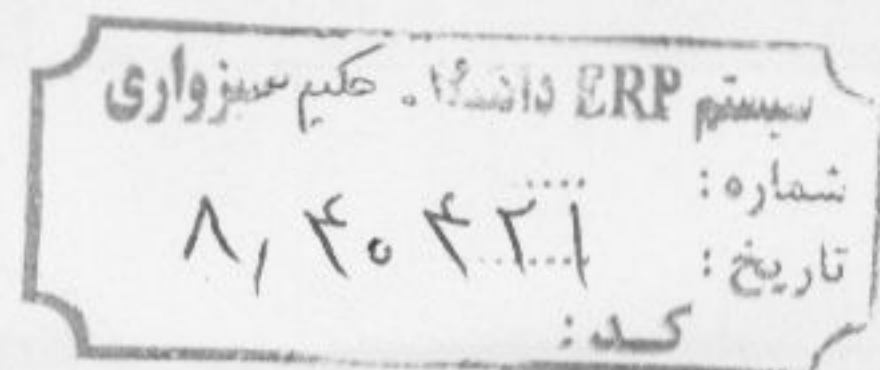 سیستم ERP دانشگاه حکیم سبزواری
شماره :
۸,۴۰۴۲۱
تاریخ :
کد :